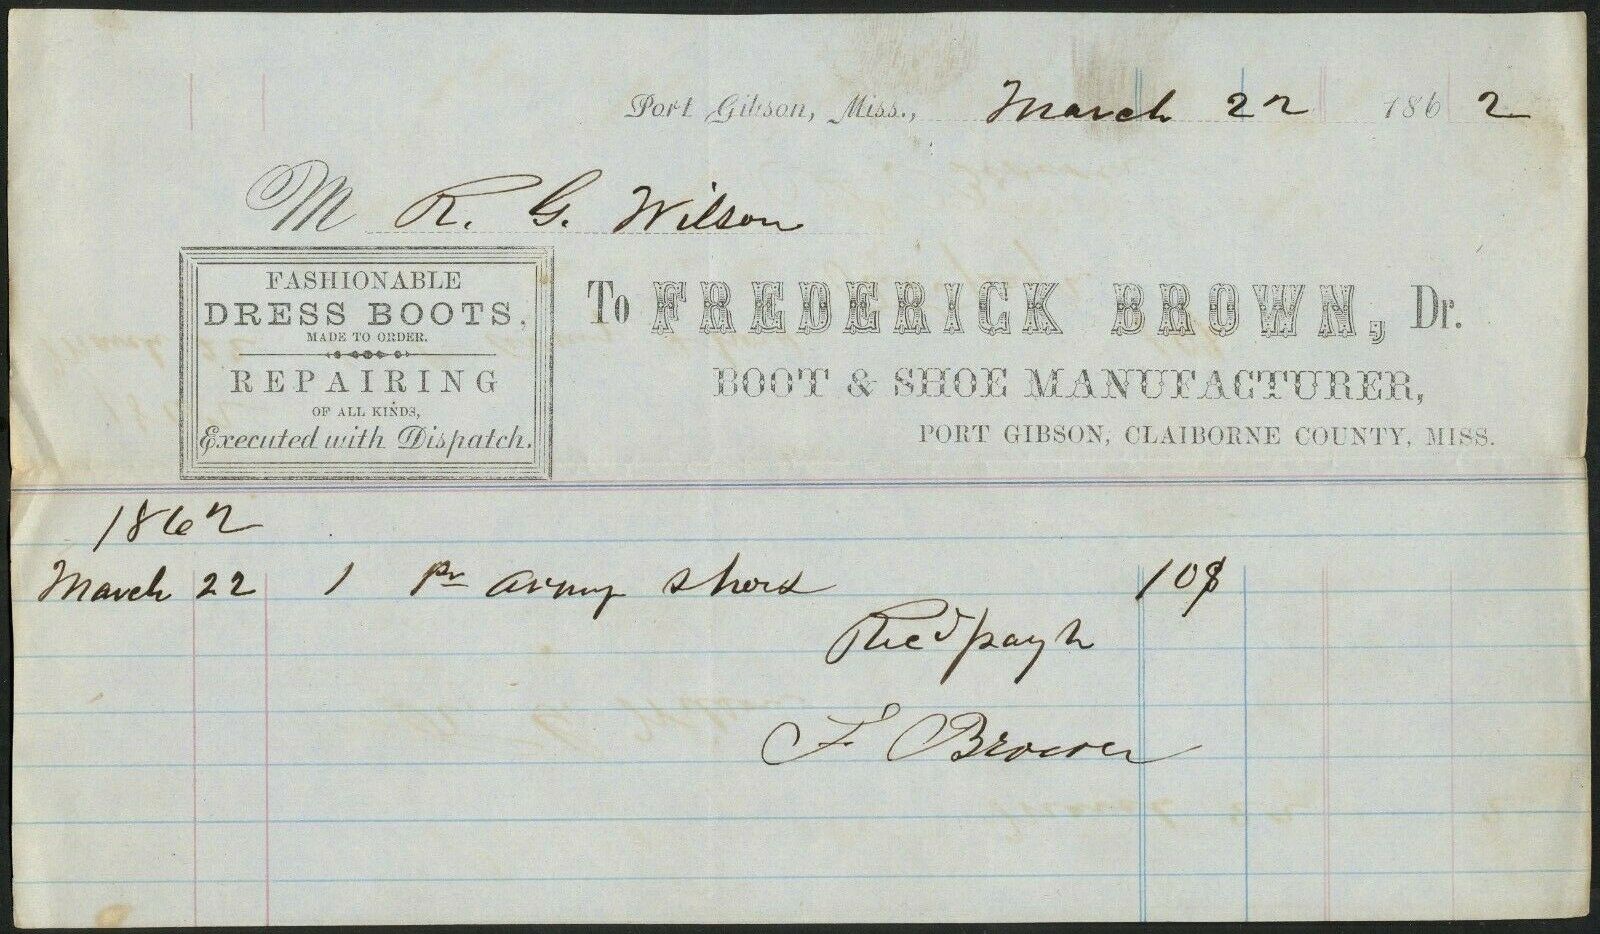 Port Gibson, Miss., March 22 1862
M R. G. Wilson
FASHIONABLE
DRESS BOOTS,
MADE TO ORDER.
REPAIRING
OF ALL KINDS,
Executed with Dispatch.
To FREDERICK BROWN, Dr.
BOOT & SHOE MANUFACTURER,
PORT GIBSON, CLAIBORNE COUNTY, MISS.
1862
March 22 1 Pr army shoes 10$
Recd payt
F Brown